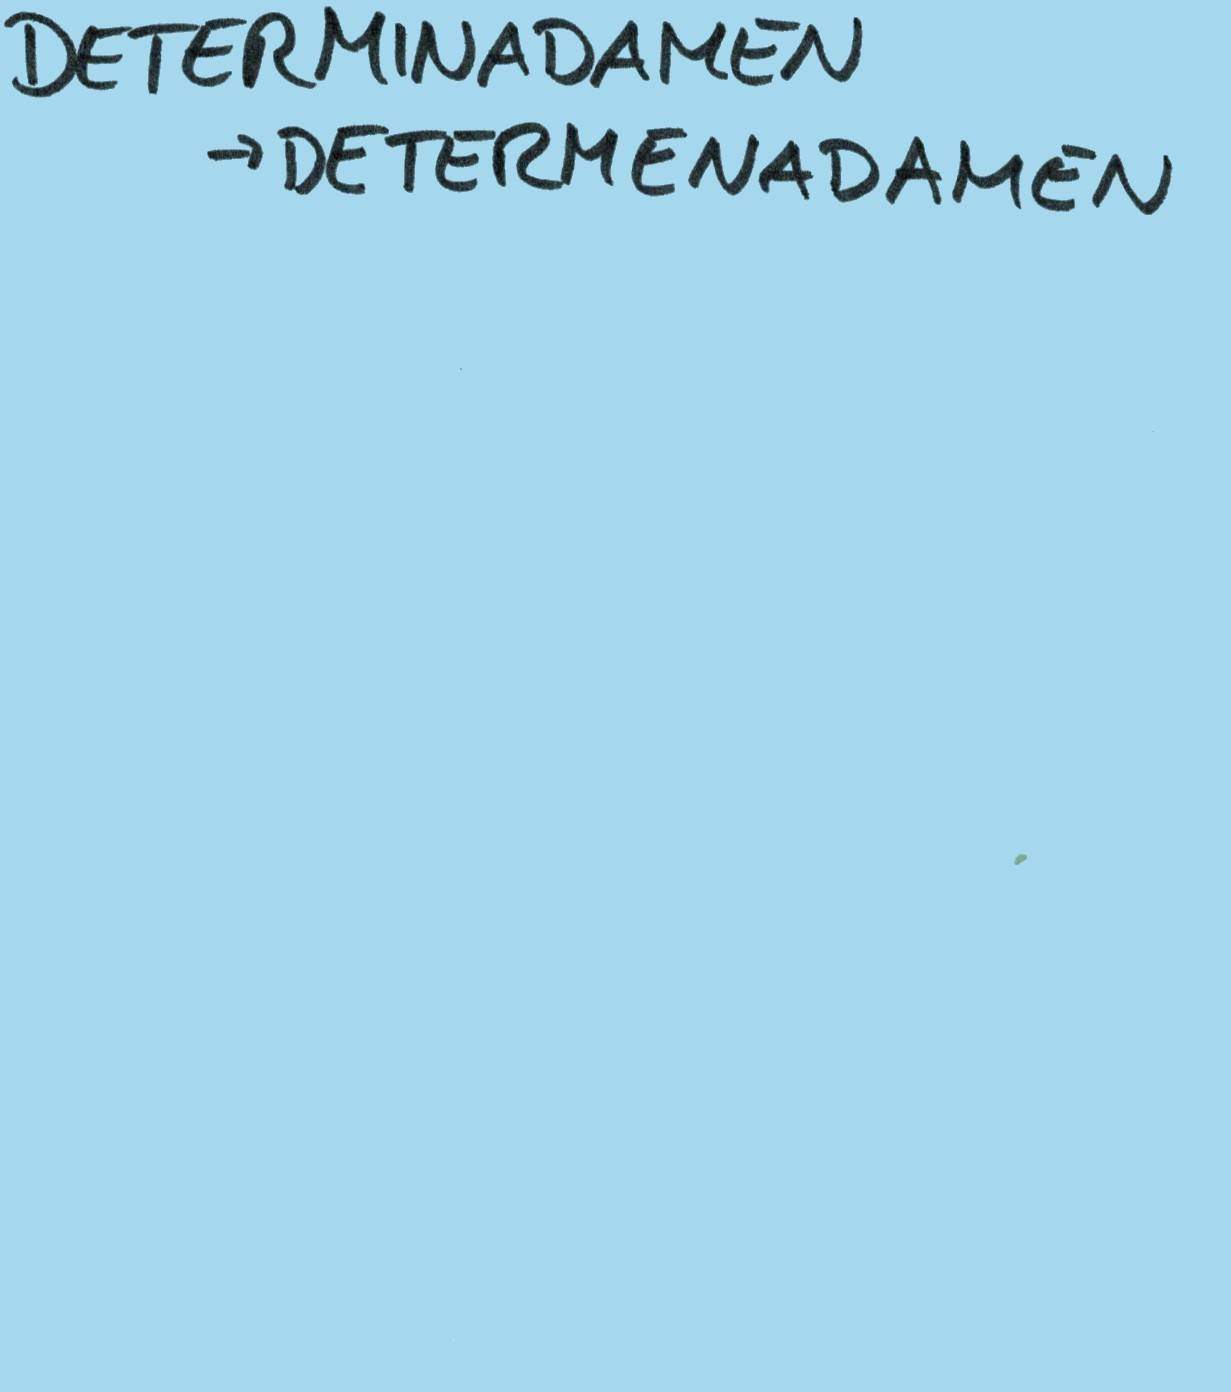 DETERMINADAMEN
→DETERMENADAMEN